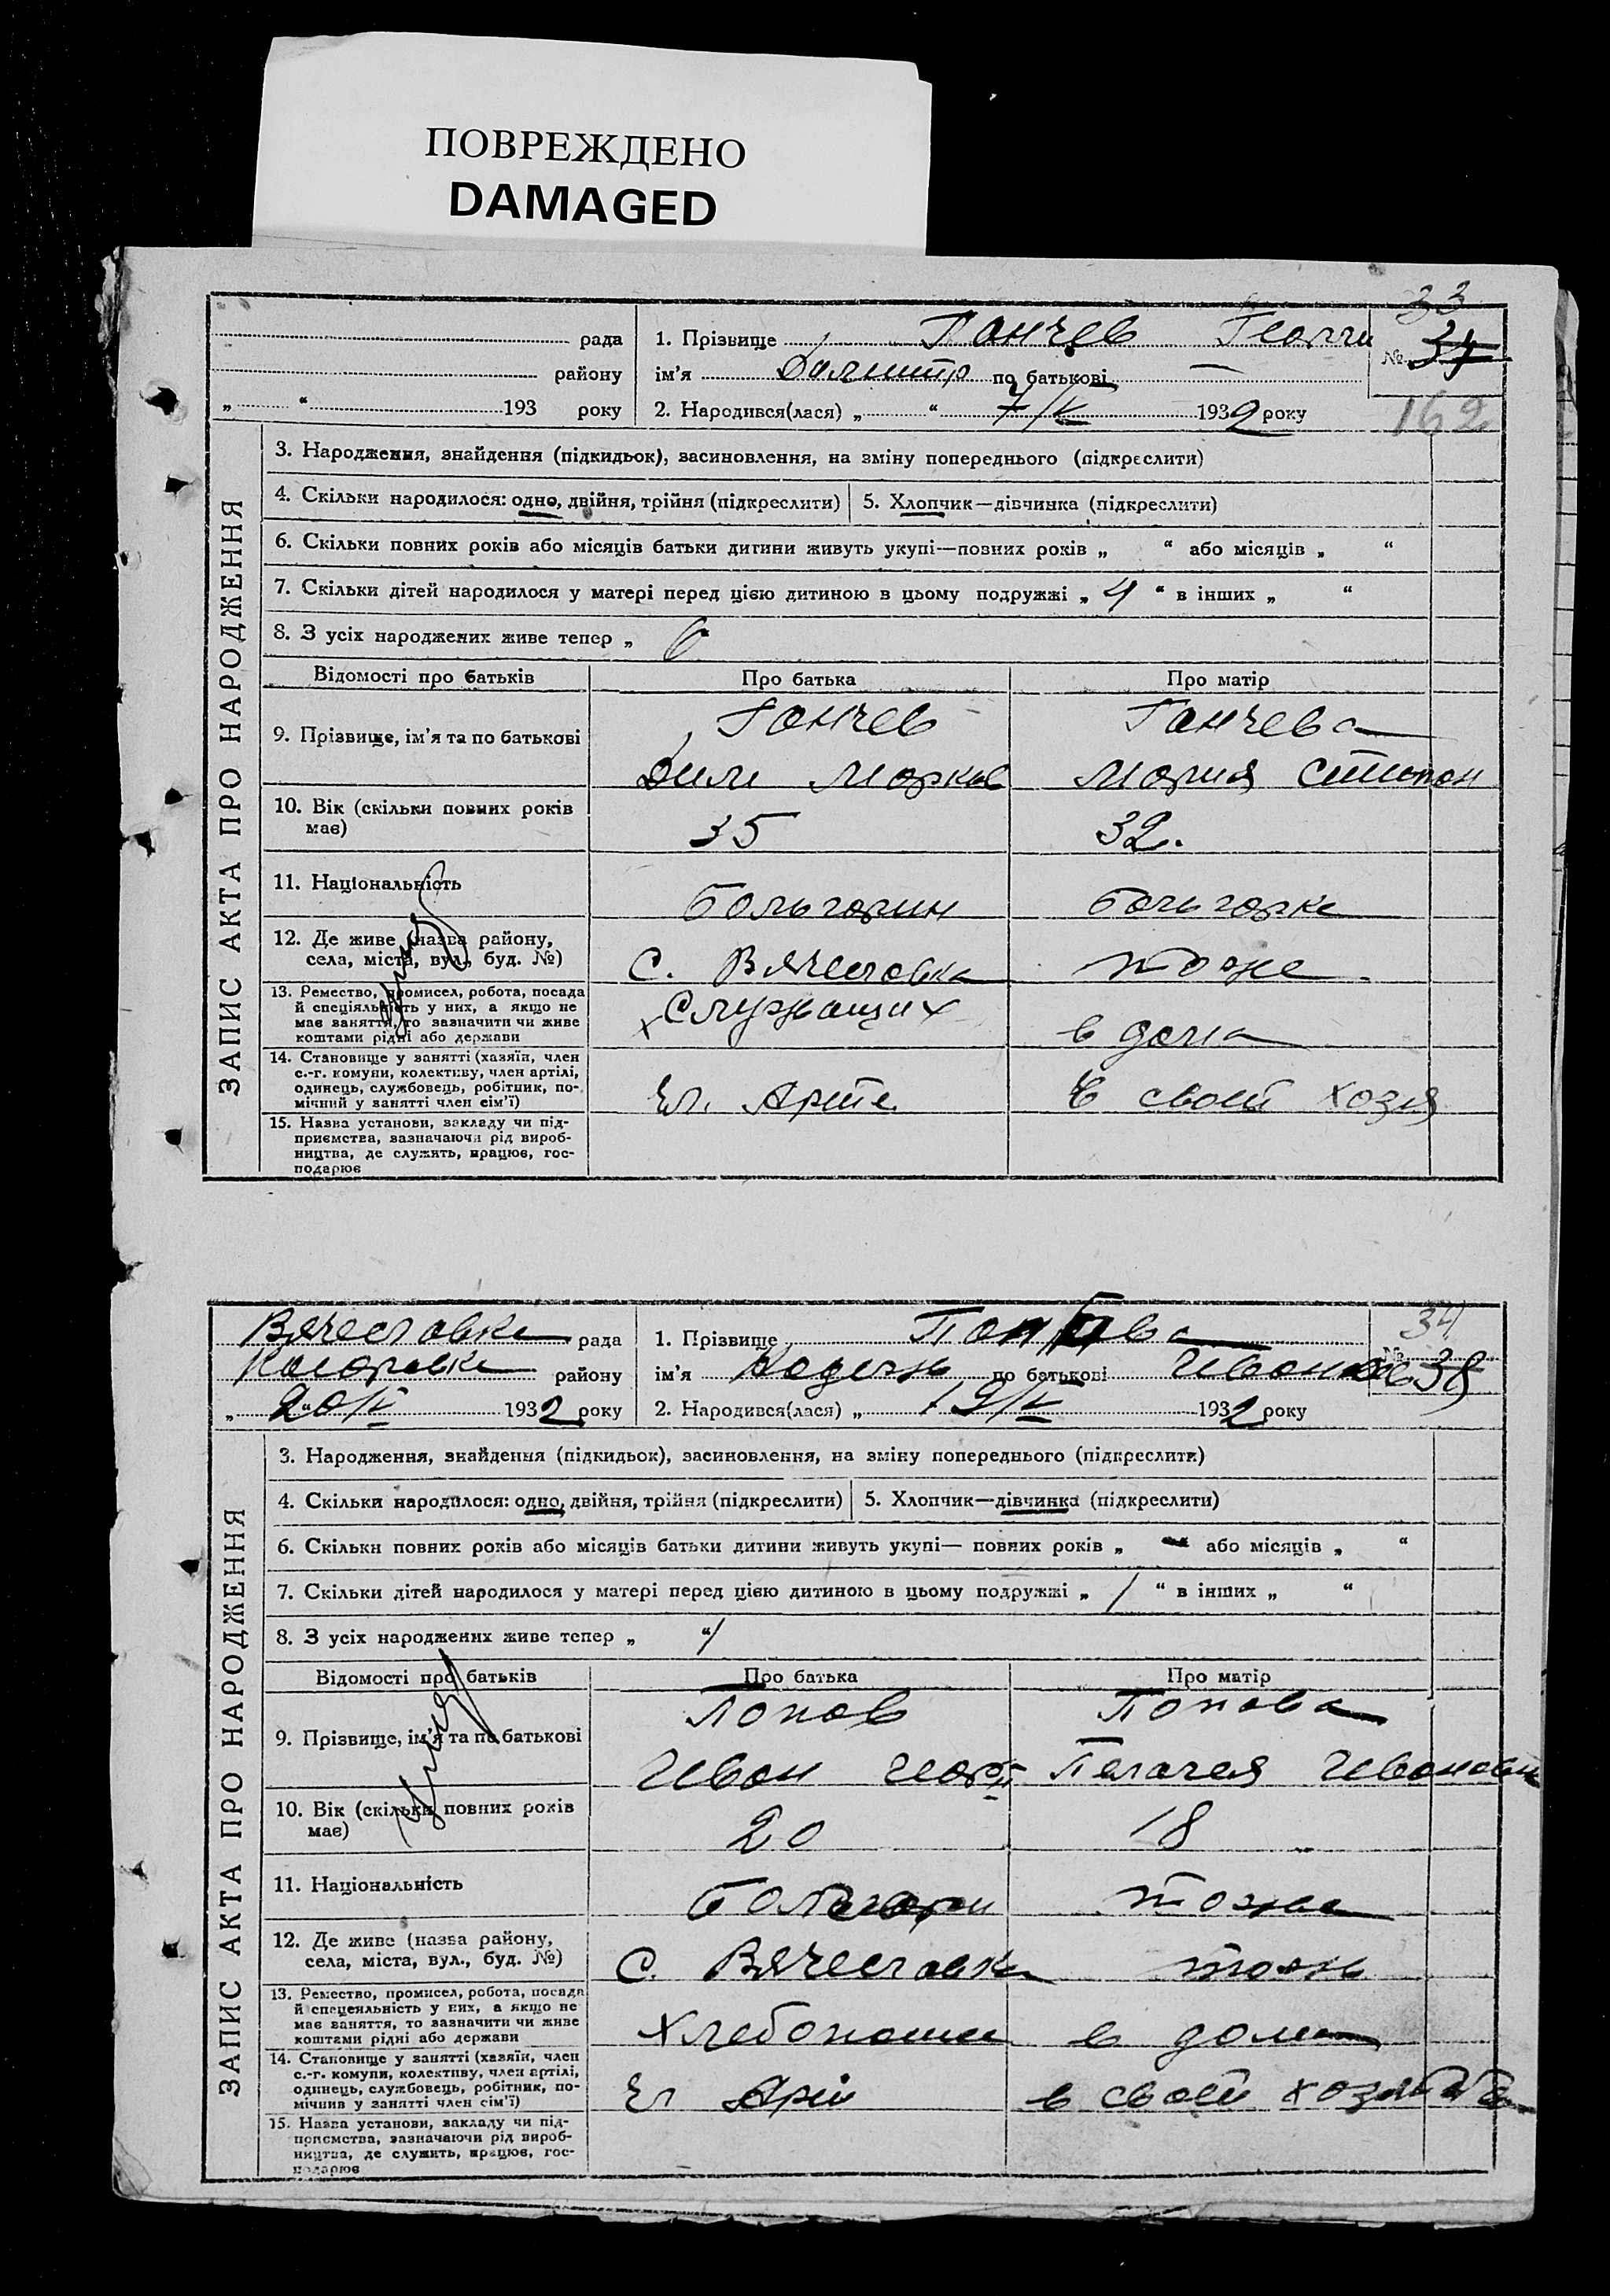 ПОВРЕЖДЕНО
DAMAGED
33
рада
1. Прізвище Ганчев Георги
№ 34
району
ім'я Дмитр по батькові —
„ “ 193 року
2. Народився(лася) „ “ 7/V 1932 року
162
ЗАПИС АКТА ПРО НАРОДЖЕННЯ
3. Народження, знайдення (підкидьок), засиновлення, на зміну попереднього (підкреслити)
4. Скільки народилося: одно, двійня, трійня (підкреслити)
5. Хлопчик—дівчинка (підкреслити)
6. Скільки повних років або місяців батьки дитини живуть укупі—повних років „ “ або місяців „ “
7. Скільки дітей народилося у матері перед цією дитиною в цьому подружжі „ 4 “ в інших „ “
8. З усіх народжених живе тепер „ 6
Відомості про батьків
Про батька
Про матір
9. Прізвище, ім'я та по батькові
Ганчев
Ганчева
Марков
Мария Степан
10. Вік (скільки повних років
має)
35
32.
11. Національність
Болгарин
Болгарка
12. Де живе (назва району,
села, міста, вул., буд. №)
С. Вячеславка
тоже
13. Ремество, промисел, робота, посада
й спеціяльність у них, а якщо не
має заняття, то зазначити чи живе
коштами рідні або держави
х Служащих
в дома
14. Становище у занятті (хазяїн, член
с.-г. комуни, колективу, член артілі,
одинець, службовець, робітник, по-
мічний у занятті член сім'ї)
Чл. Арте.
в своем хозя
15. Назва установи, закладу чи під-
приємства, зазначаючи рід вироб-
ництва, де служить, працює, гос-
подарює
34
Вячеславка рада
1. Прізвище Попова
№ 38
району
ім'я по батькові Иванов
„ 20/V 1932 року
2. Народився(лася) „ 19/V 1932 року
ЗАПИС АКТА ПРО НАРОДЖЕННЯ
3. Народження, знайдення (підкидьок), засиновлення, на зміну попереднього (підкреслити)
4. Скільки народилося: одно, двійня, трійня (підкреслити)
5. Хлопчик—дівчинка (підкреслити)
6. Скільки повних років або місяців батьки дитини живуть укупі— повних років „ або місяців „ “
7. Скільки дітей народилося у матері перед цією дитиною в цьому подружжі „ 1 “ в інших „ “
8. З усіх народжених живе тепер „ “1
Відомості про батьків
Про батька
Про матір
9. Прізвище, ім'я та по батькові
Попов
Попова
Иван Георг
Пелагея Ивановн
10. Вік (скільки повних років
має)
20
18
11. Національність
Болгарин
тоже
12. Де живе (назва району,
села, міста, вул., буд. №)
С. Вячеславка
тоже
13. Ремество, промисел, робота, посада
й спецеяльність у них, а якщо не
має заняття, то зазначити чи живе
коштами рідні або держави
Хлебопаши
в дома
14. Становище у занятті (хазяїн, член
с.-г. комуни, колективу, член артілі,
одинець, службовець, робітник, по-
мічнив у занятті член сім'ї)
Чл Арт
в своем хозяйства
15. Назва установи, закладу чи під-
приємства, зазначаючи рід вироб-
ництва, де служить, працює, гос-
подарює